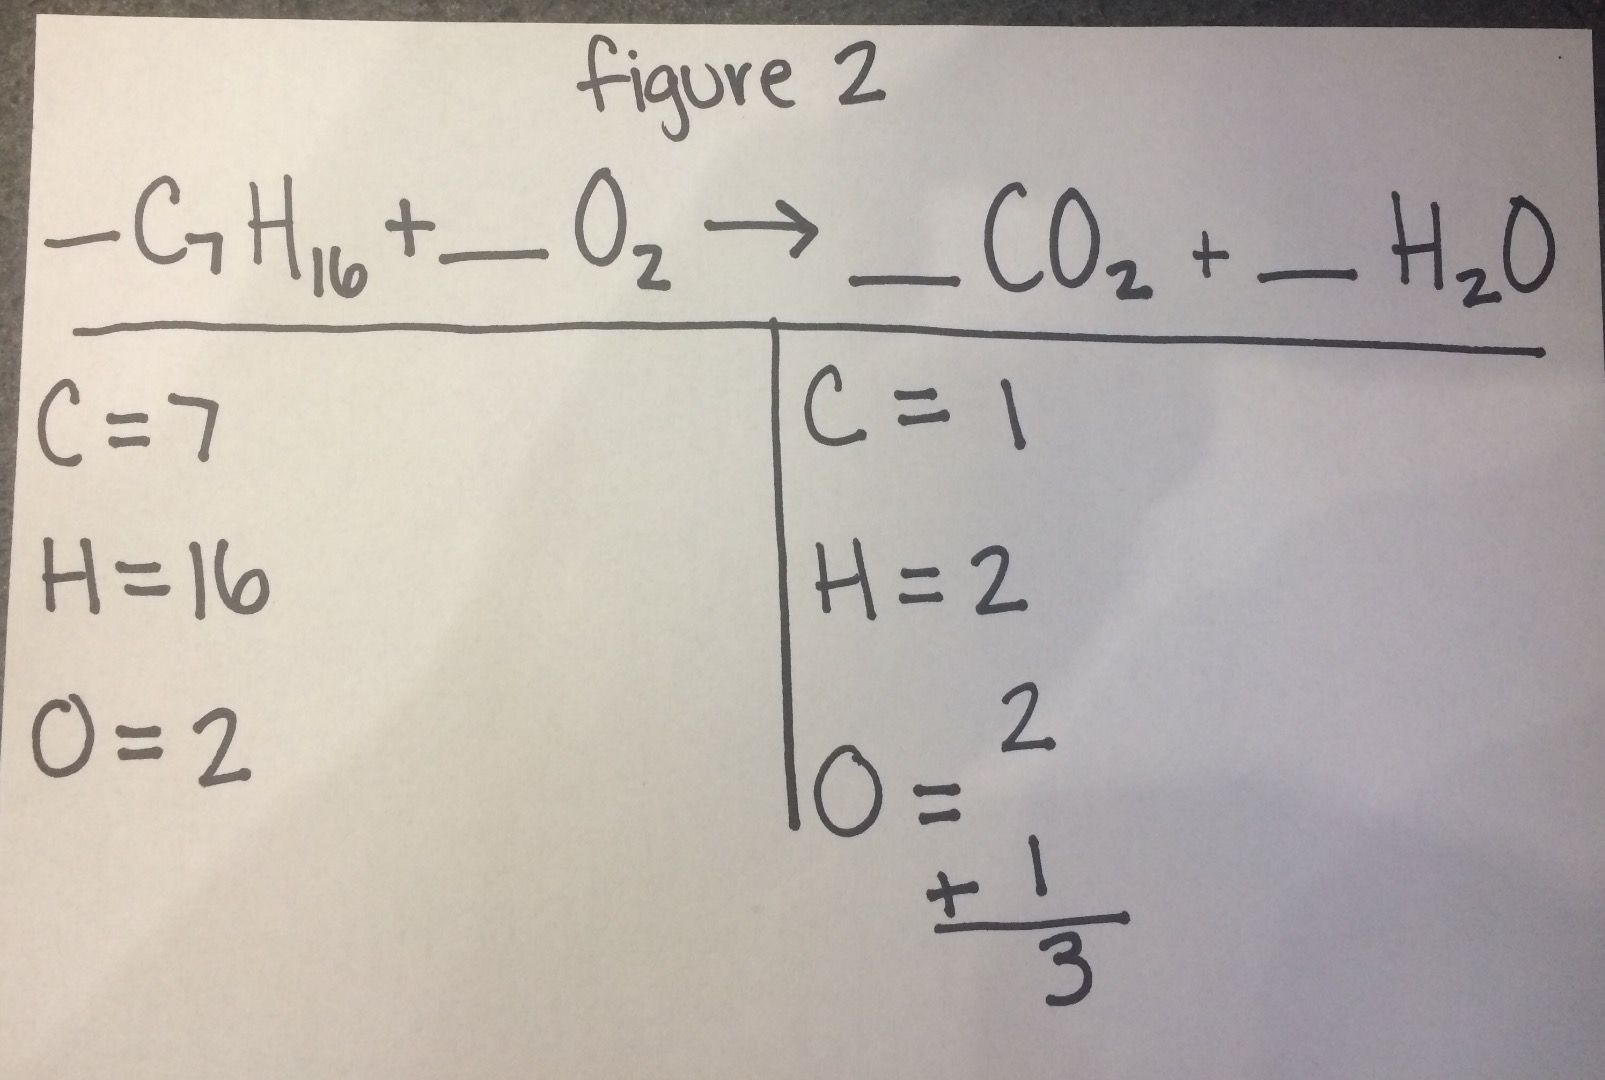 figure 2
_ C₇H₁₆ + __ O₂ → __ CO₂ + __ H₂O
C = 7
H = 16
O = 2
C = 1
H = 2
2
O =
+ 1
3